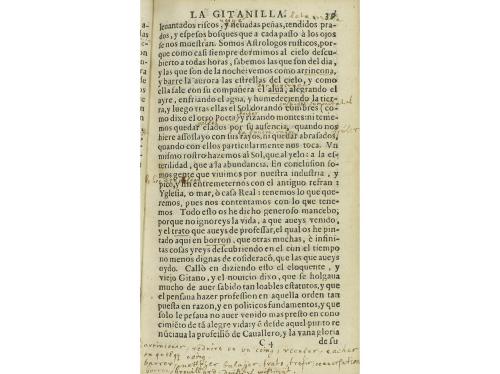 LA GITANILLA. 38
leuantados riscos, y neuadas peñas, tendidos prados, y espesos bosques que a cada passo a los ojos
se nos muestran. Somos Astrologos rusticos, porque
como casi siempre dormimos al cielo descubierto
a todas horas, sabemos las que son del dia,
y las que son de la noche: vemos como arrincona,
y barre la aurora las estrellas del cielo, y como
ella sale con su compañera el alua, alegrando el
ayre, enfriando el agua, y humedeciendo la tierra,
y luego tras ellas el Sol dorando cumbres (
como dixo el otro Poeta) y rizando montes: ni tememos
quedar elados por su ausencia, quando nos
hiere a soslayo con sus rayos, ni quedar abrasados,
quando con ellos particularmente nos toca. Vn
mismo rostro hazemos al Sol, que al yelo: a la esterilidad,
que a la abundancia. En conclusion somos
gente que viuimos por nuestra industria, y
pico, y sin entremeternos con el antiguo refran:
Yglesia, o mar, ò casa Real: tenemos lo que queremos,
pues nos contentamos con lo que tenemos
Todo esto os he dicho generoso mancebo,
porque no ignoreys la vida, a que aueys venido,
y el trato que aueys de professar, el qual os he pintado
aqui en borron, que otras muchas, è infinitas
cosas yreys descubriendo en el con el tiempo
no menos dignas de cõsideraciõ, que las que aueys
oydo. Callò en diziendo esto el eloquente, y
viejo Gitano, y el nouicio dixo, que se holgaua
mucho de auer sabido tan loables estatutos, y que
el pensaua hazer profession en aquella orden tan
puesta en razon, y en politicos fundamentos, y que
solo le pesaua no auer venido mas presto en conocimiẽto
de tã alegre vida: y õ desde aquel punto renũciaua
la professiõ de Cauallero, y la vana gloria
C 4 de su